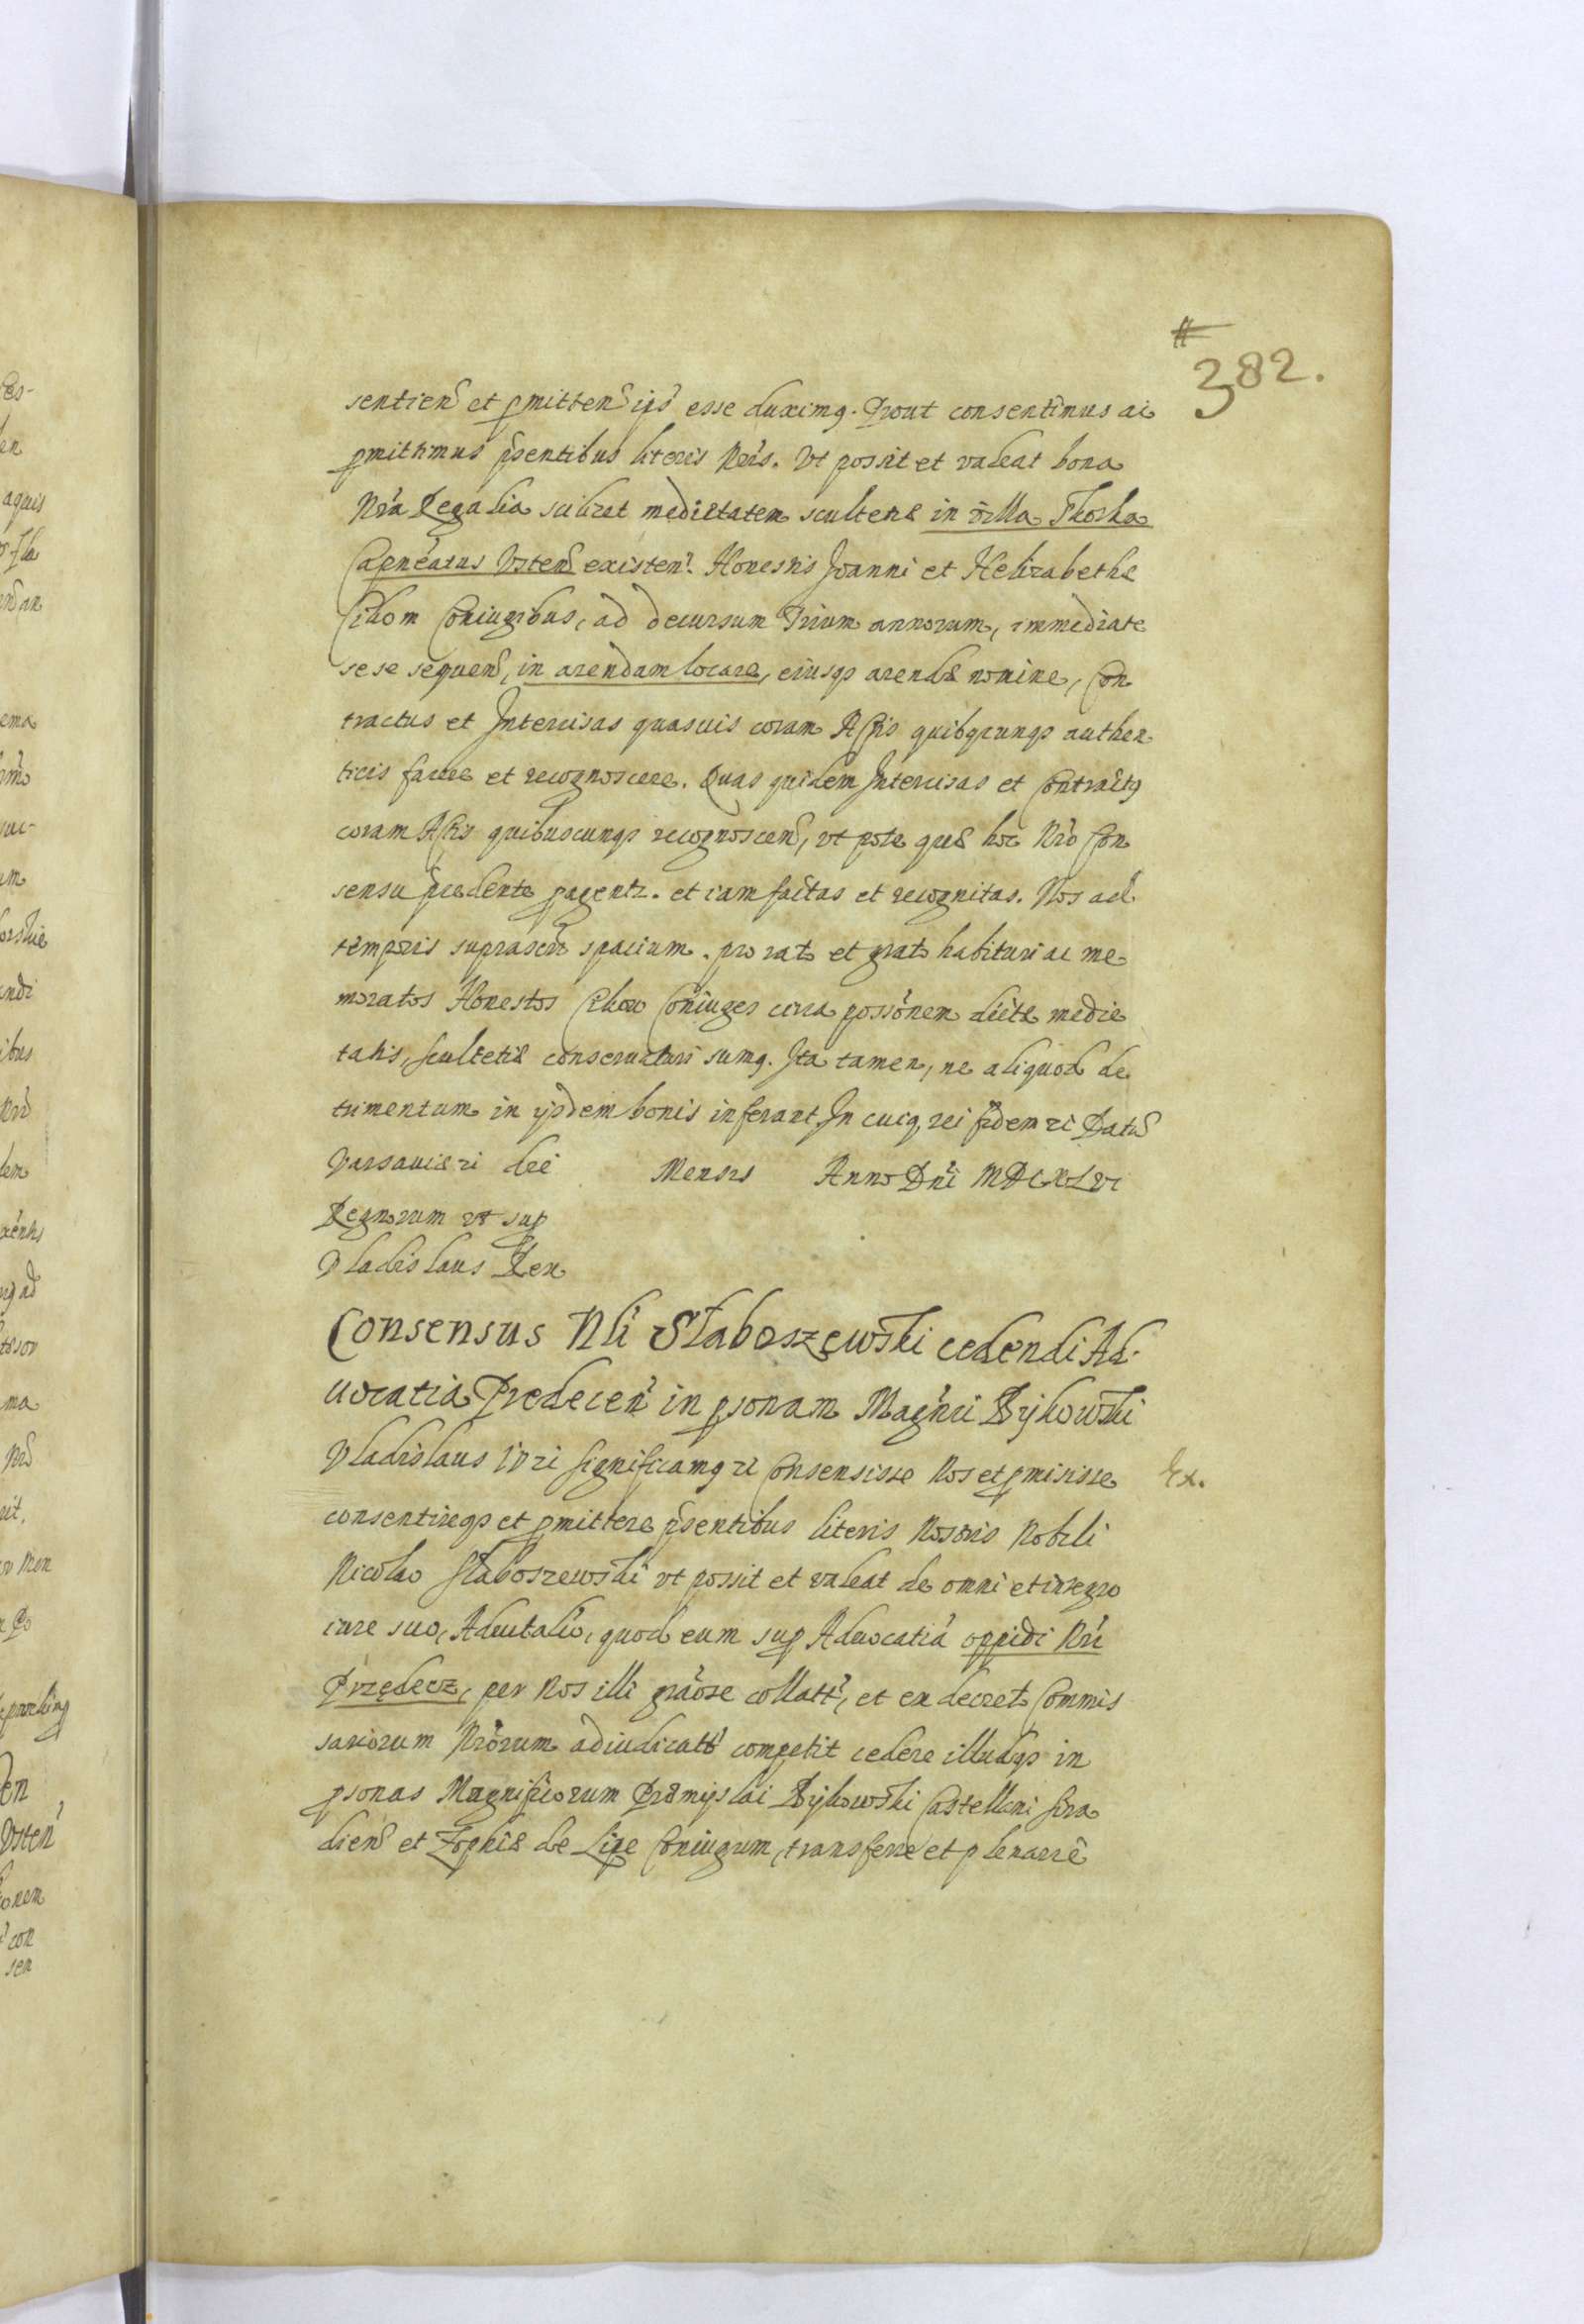 382.
sentien et pmitten ijs esse duximq. Prout consentimus ac
pmittimus psentibus literis Nris. Vt possit et valeat bona
Nra Regalia scilicet medietatem scultetiæ in villa Tkorka
Capneatus Vsten existen. Honestis Joanni et Helizabethæ
Coniugibus, ad decursum Trium annorum, immediate
sese sequen, in arendam locare, eiusqs arendæ nomine, Con
tractus et Intercisas quasuis coram Actis quibqcunqs authen
ticis facere et recognoscere. Quas quidem Intercisas et Contractq
coram Actis quibuscunqs recognoscen, vt pote quæ hoc Nro Con
sensu pcedente pagentr. et iam factas et recognitas. Nos ad
temporis suprascri spacium. pro rato et grato habituri ac me
moratos Honestos Coniuges circa possonem dictæ medie
tatis, scultetiæ conseruaturi sumq. Ita tamen, ne aliquod de
trimentum in ijsdem bonis inferant In cuiq rei fidem ri Datt
Varsauiæ ri die Mensis Anno Dni MDCXLVI
Regnorum vt sup
Vladislaus Rex
Consensus Nli Słaboszewski cedendi Ad.
uocatia Predecen in psonam Magnci Bykowski
Vladislaus IV ri significamq ri Consensisse Nos et pmisisse Ex.
consentireqs et pmittere psentibus literis Nostris Nobili
Nicolao Słaboszewski vt possit et valeat de omni et integro
iure suo, Aduitali, quod eum sup Aduocatia oppidi Nri
Przędecz, per Nos illi graose collatt, et ex decreto Commis
sariorum Nrorum adiudicatt competit cedere illudqs in
psonas Magnificorum Præmyslai Bykowski Castellani Sira
dien et Zophiæ de Lipe Coniugum, transferre et plenarie